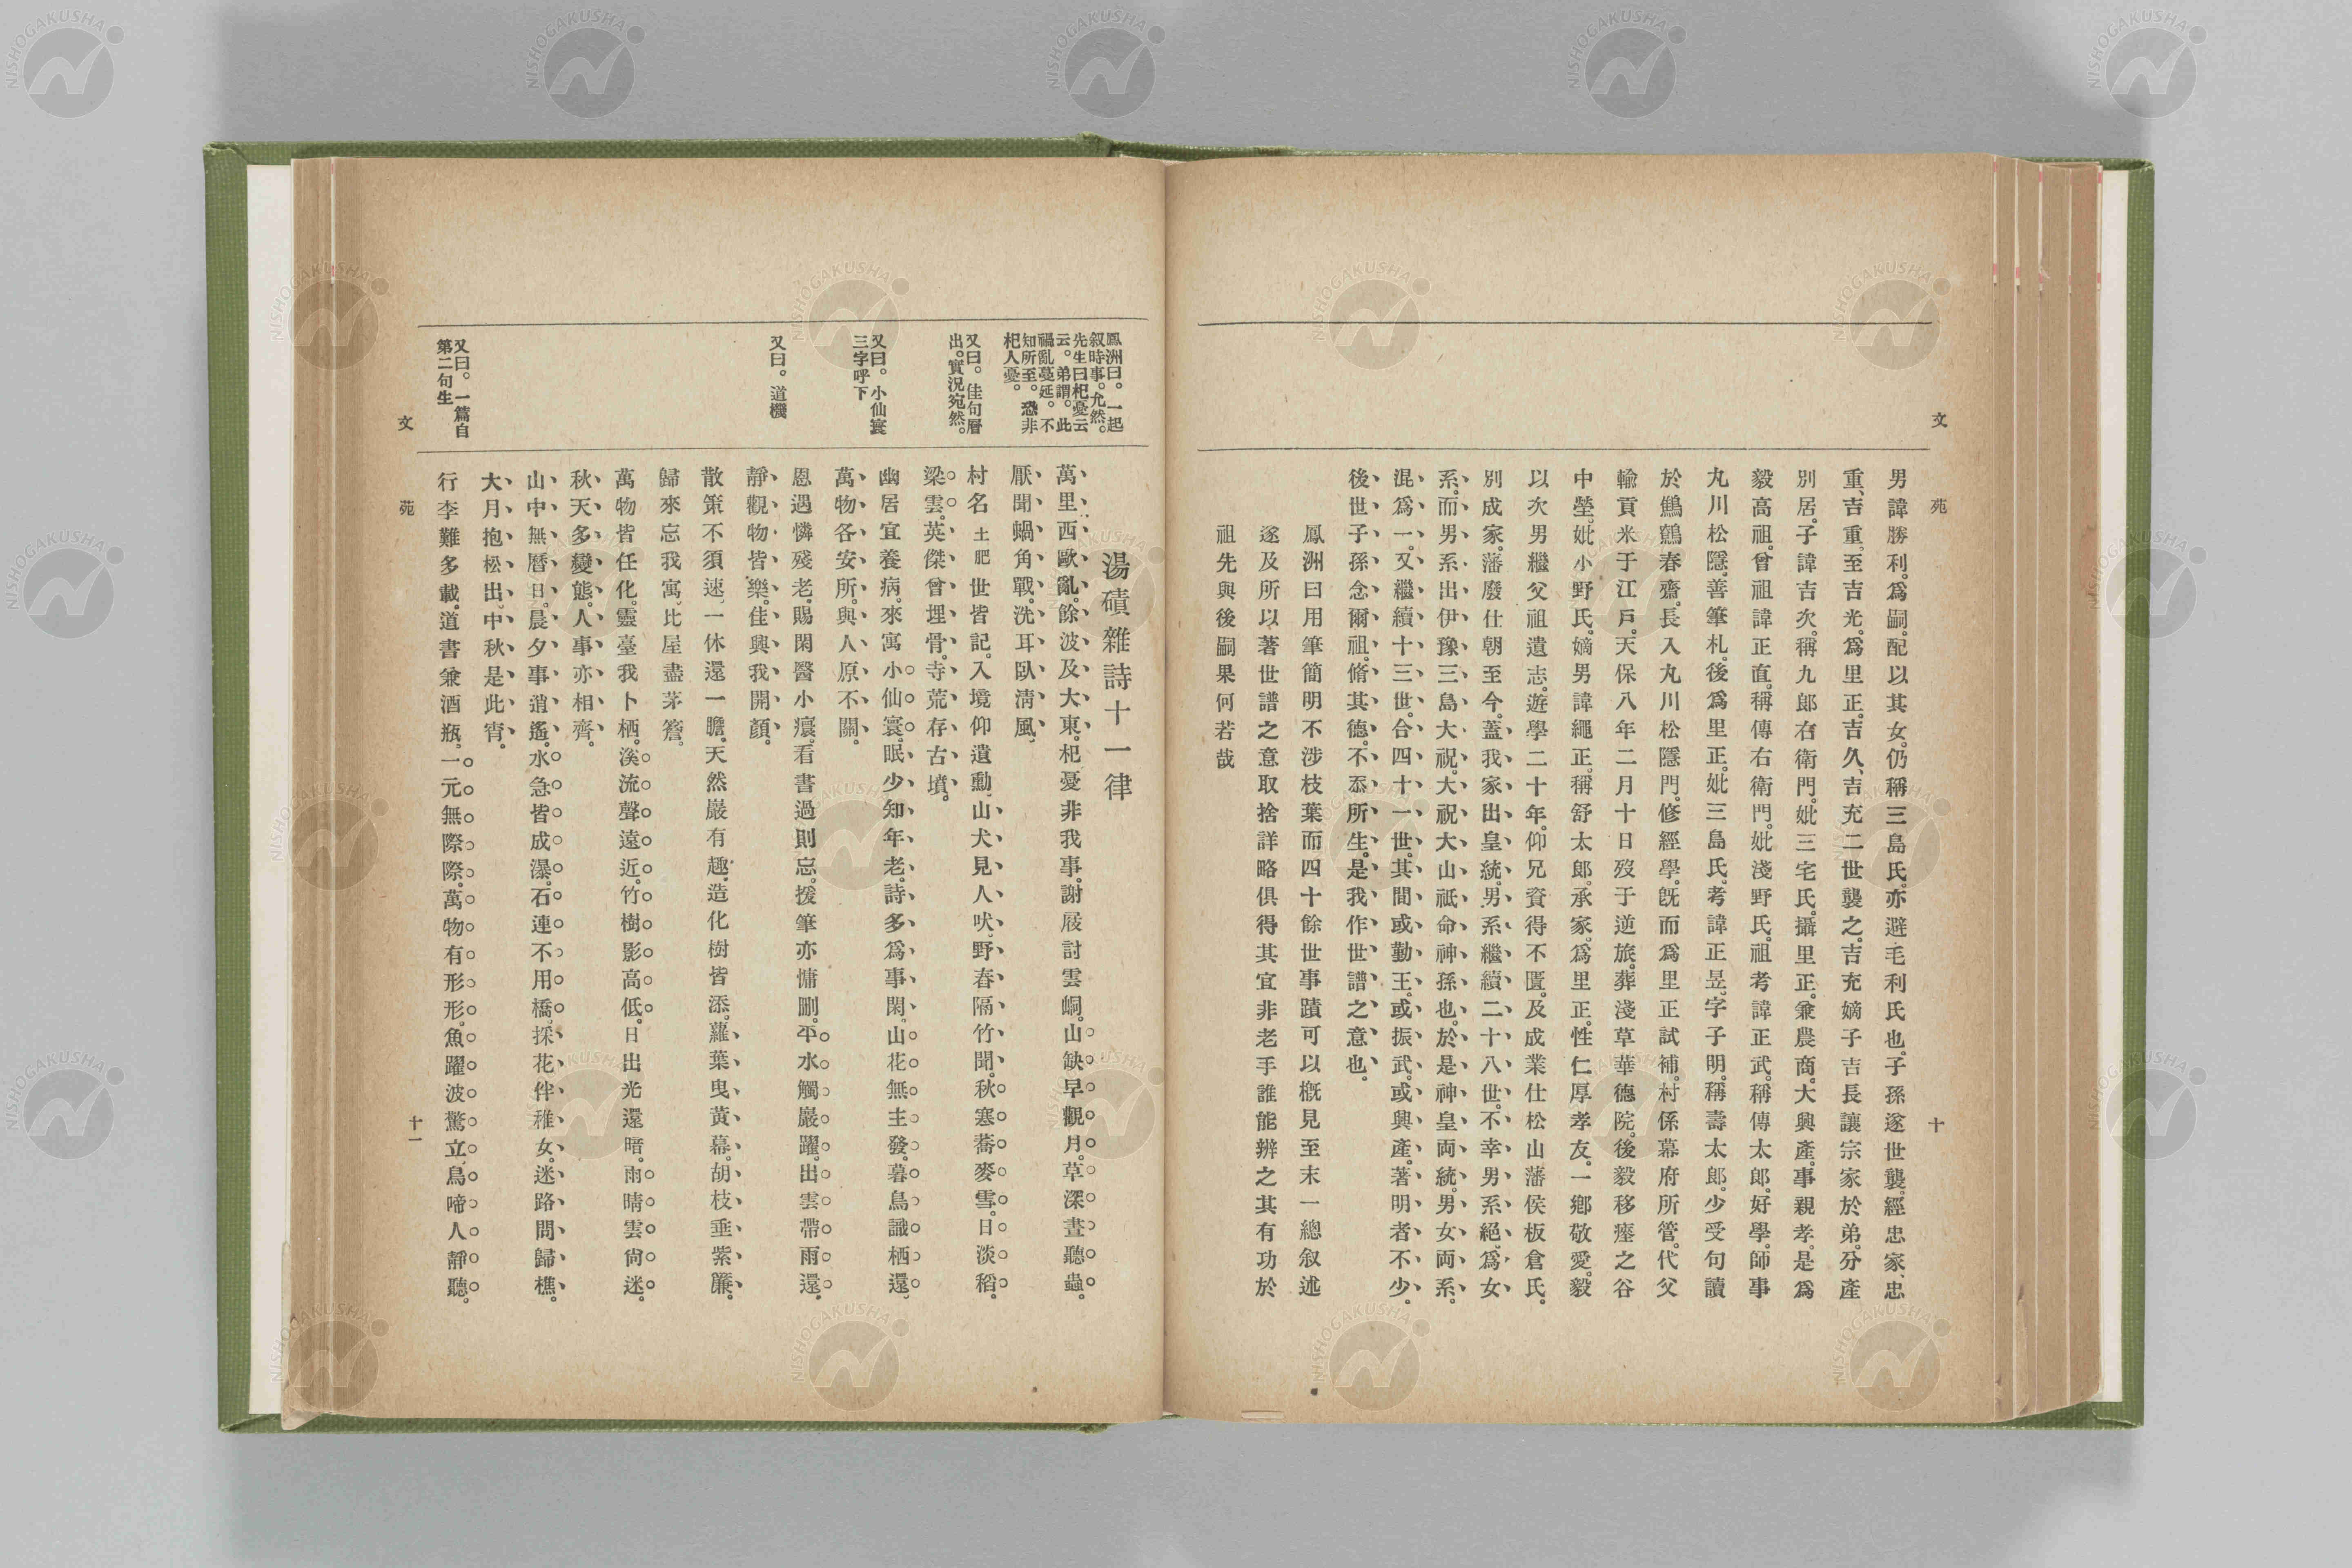 文
苑
十
男諱勝利。爲嗣。配以其女。仍稱三島氏。亦避毛利氏也。子孫遂世襲。經忠家、忠
重、吉重、至吉光。爲里正。吉久、吉充二世襲之。吉充嫡子吉長讓宗家於弟。分產
別居。子諱吉次。稱九郎右衛門。妣三宅氏。攝里正。兼農商。大興產。事親孝。是爲
毅高祖。曾祖諱正直。稱傳右衛門。妣淺野氏。祖考諱正武。稱傳太郎。好學。師事
丸川松隱。善筆札。後爲里正。妣三島氏。考諱正昱。字子明。稱壽太郎。少受句讀
於鷦鷯春齋。長入丸川松隱門。修經學。既而爲里正試補。村係幕府所管。代父
輸貢米于江戶。天保八年二月十日歿于逆旅。葬淺草華德院。後毅移瘞之谷
中塋。妣小野氏。嫡男諱繩正。稱舒太郎。承家。爲里正。性仁厚孝友。一鄉敬愛。毅
以次男繼父祖遺志。遊學二十年。仰兄資得不匱。及成業仕松山藩侯板倉氏。
別成家。藩廢仕朝至今。蓋我家出皇統。男系繼續二十八世。不幸男系絕。爲女
系。而男系出伊豫三島大祝。大祝大山祇命神孫也。於是神皇兩統。男女兩系。
混爲一。又繼續十三世。合四十一世。其間或勤王。或振武。或興產。著明者不少。
後世子孫念爾祖。脩其德。不忝所生。是我作世譜之意也。
鳳洲曰用筆簡明不涉枝葉而四十餘世事蹟可以槪見至末一總叙述
遂及所以著世譜之意取捨詳略俱得其宜非老手誰能辨之其有功於
祖先與後嗣果何若哉
鳳洲曰。一起
叙時事。允然。
先生曰杞憂云
云。弟謂。此
禍亂蔓延。不
知所至。恐非
杞人憂。
又曰。佳句層
出。實況宛然。
又曰。小仙寰
三字呼下
又曰。道機
又曰。一篇自
第二句生
湯磧雜詩十一律
萬里西歐亂。餘波及大東。杞憂非我事。謝屐討雲峒。山缺早觀月。草深晝聽蟲。
厭聞蝸角戰。洗耳臥淸風。
村名土肥世皆記。入境仰遺勳。山犬見人吠。野春隔竹聞。秋寒蕎麥雪。日淡稻
梁雲。英傑曾埋骨。寺荒存古墳。
幽居宜養病。來寓小仙寰。眠少知年老。詩多爲事閑。山花無主發。暮鳥識栖還。
萬物各安所。與人原不關。
恩遇憐殘老。賜閑醫小癏。看書過則忘。援筆亦慵刪。平水觸巖躍。出雲帶雨還。
靜觀物皆樂。佳興我開顏。
散策不須速。一休還一瞻。天然巖有趣。造化樹皆添。蘿葉曳黃幕。胡枝垂紫簾。
歸來忘我寓。比屋盡茅簷。
萬物皆任化。靈臺我卜栖。溪流聲遠近。竹樹影高低。日出光還暗。雨晴雲尙迷。
秋天多變態。人事亦相齊。
山中無曆日。晨夕事逍遙。水急皆成瀑。石連不用橋。採花伴稚女。迷路問歸樵。
大月抱松出。中秋是此宵。
行李難多載。道書兼酒瓶。一元無際際。萬物有形形。魚躍波驚立。鳥啼人靜聽。
文
苑
十一